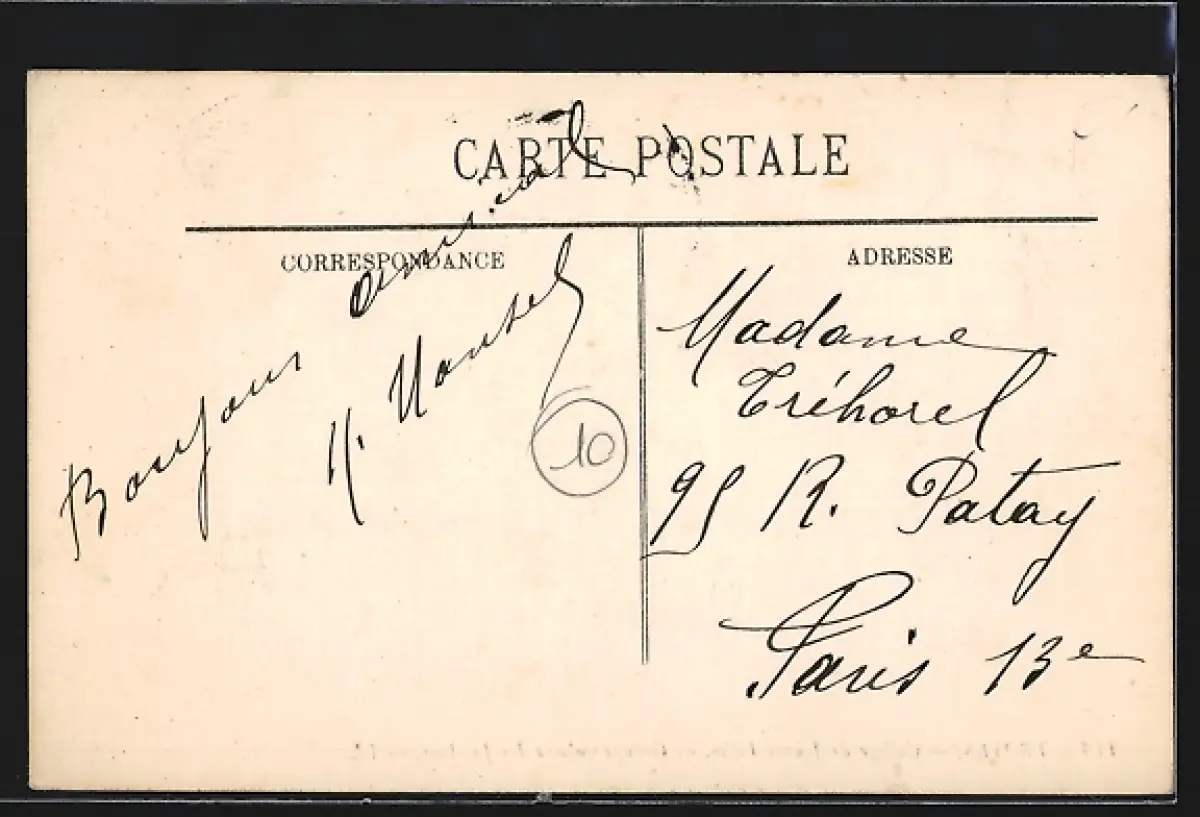 CARTE POSTALE
CORRESPONDANCE
Bonjour amical
ADRESSE
Madame
Tréhorel
95 R. Patay
Paris 13e
10